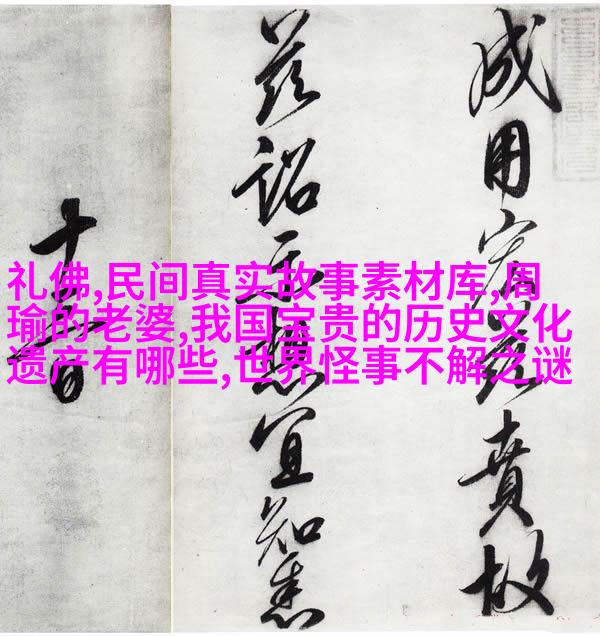 礼佛,民间真实故事素材库,周
瑜的老婆,我国宝贵的历史文化
遗产有哪些,世界怪事不解之谜
成用宏茲賁故
茲詔示想宜知悉
十日